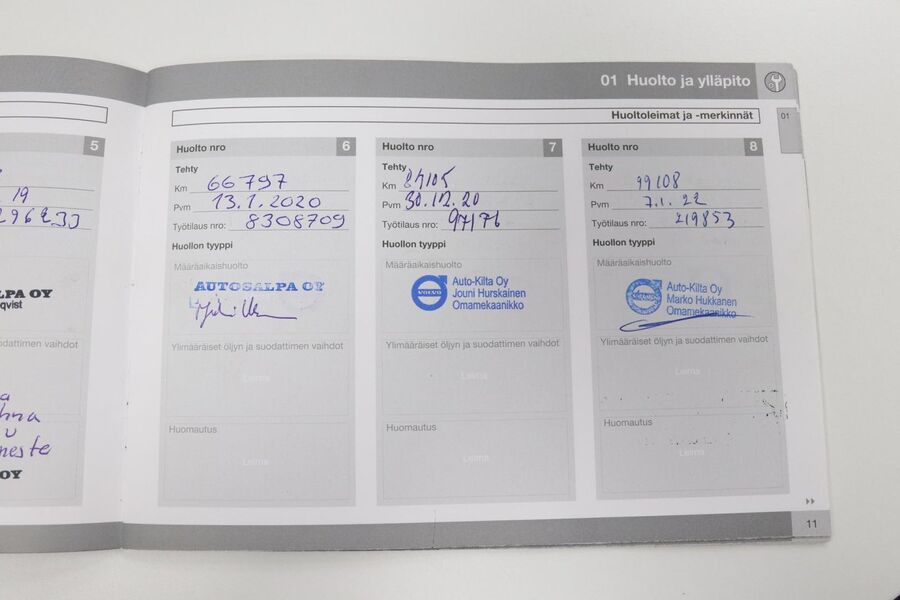 01 Huolto ja ylläpito
Huoltoleimat ja -merkinnät
01
5
19
LPA OY
qvist
suodattimen vaihdot
OY
Huolto nro 6
Tehty
Km 66797
Pvm 13.1.2020
Työtilaus nro: 8308709
Huollon tyyppi
Määräaikaishuolto
AUTOSALPA OY
Ylimääräiset öljyn ja suodattimen vaihdot
Leima
Huomautus
Leima
Huolto nro 7
Tehty
Km 84105
Pvm 30.12.20
Työtilaus nro: 97176
Huollon tyyppi
Määräaikaishuolto
VOLVO
Auto-Kilta Oy
Jouni Hurskainen
Omamekaanikko
Ylimääräiset öljyn ja suodattimen vaihdot
Leima
Huomautus
Leima
Huolto nro 8
Tehty
Km 99108
Pvm 7.1.22
Työtilaus nro: 219853
Huollon tyyppi
Määräaikaishuolto
Auto-Kilta Oy
Marko Hukkanen
Omamekaanikko
Ylimääräiset öljyn ja suodattimen vaihdot
Leima
Huomautus
Leima
11